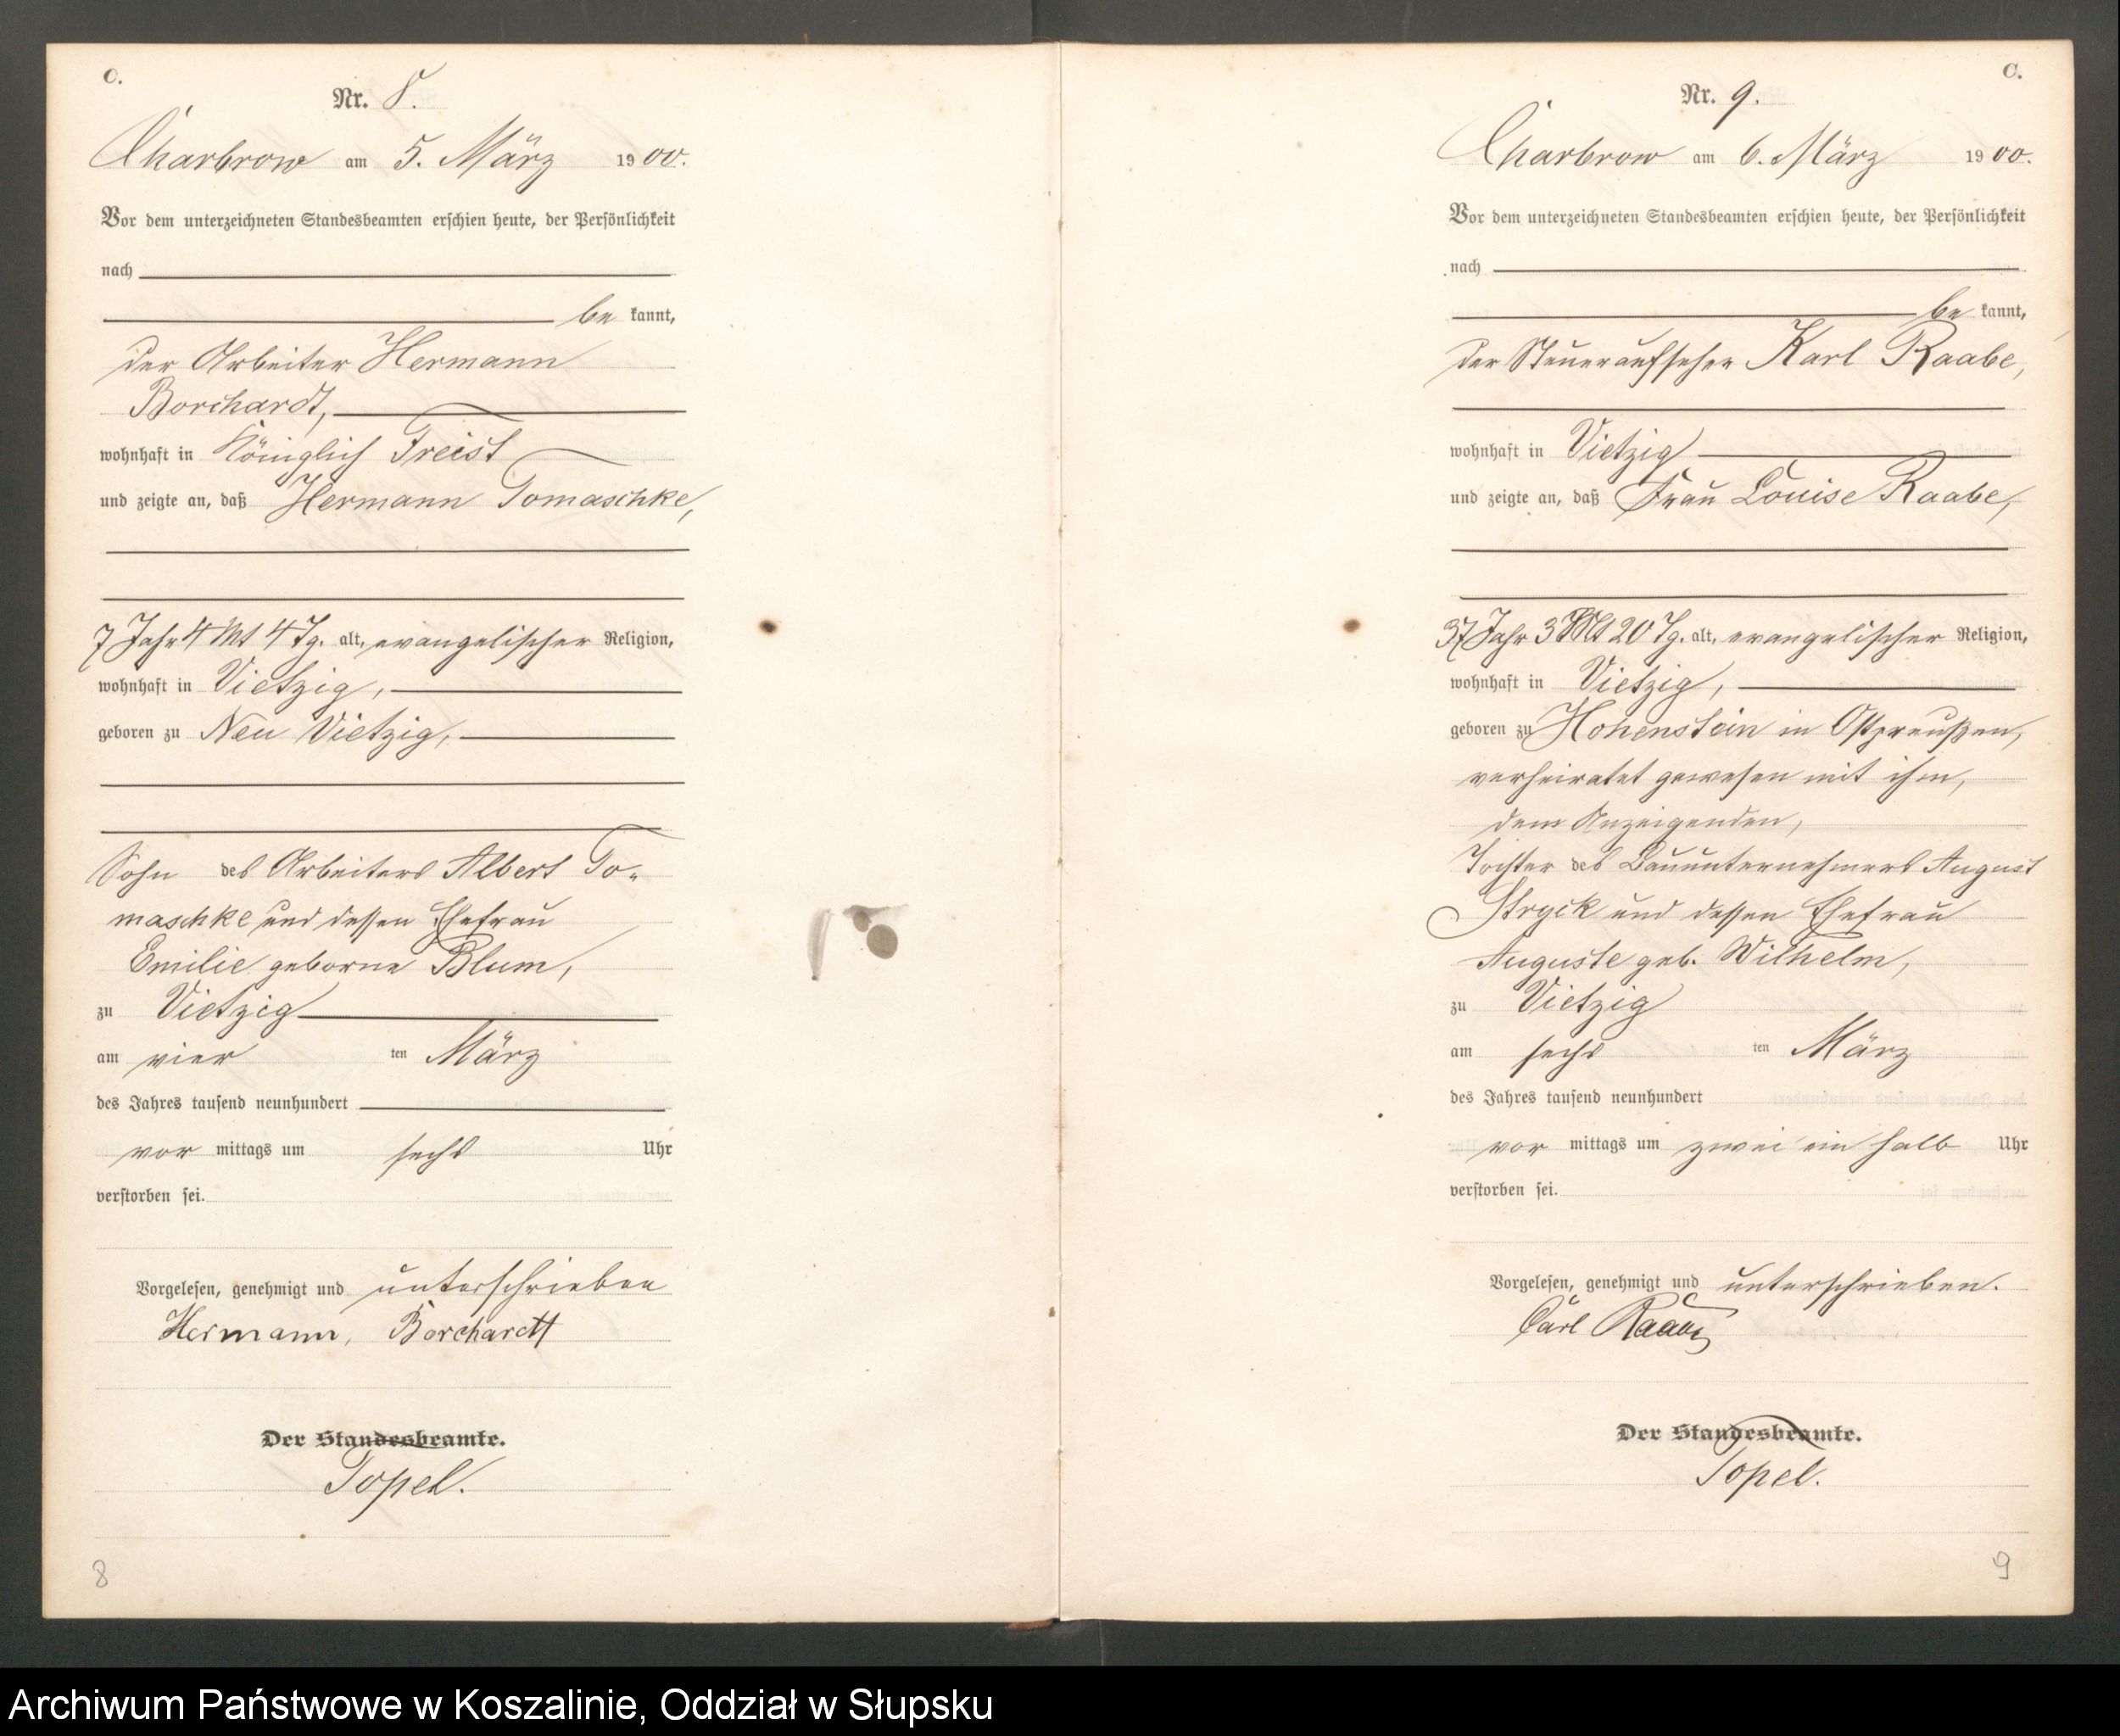 C.
Nr. 8.
Charbrow am 5. März 1900.
Vor dem unterzeichneten Standesbeamten erschien heute, der Persönlichkeit
nach
be kannt,
der Arbeiter Hermann
Borchardt,
wohnhaft in Königlich Freist
und zeigte an, daß Hermann Tomaschke,
7 Jahr 4 Mt 4 Tg. alt, evangelischer Religion,
wohnhaft in Vietzig,
geboren zu Neu Vietzig,
Sohn des Arbeiters Albert To-
maschke und dessen Ehefrau
Emilie geborne Blum,
zu Vietzig
am vier ten März
des Jahres tausend neunhundert
vor mittags um sechs Uhr
verstorben sei.
Vorgelesen, genehmigt und unterschrieben
Hermann, Borchardt
Der Standesbeamte.
Topel.
8
C.
Nr. 9.
Charbrow am 6. März 1900.
Vor dem unterzeichneten Standesbeamten erschien heute, der Persönlichkeit
nach
be kannt,
der Steueraufseher Karl Raabe,
wohnhaft in Vietzig
und zeigte an, daß Frau Louise Raabe,
37 Jahr 3 Mt 20 Tg. alt, evangelischer Religion,
wohnhaft in Vietzig,
geboren zu Hohenstein in Ostpreußen,
verheiratet gewesen mit ihm,
dem Anzeigenden,
Tochter des Bauunternehmers August
Stryck und dessen Ehefrau
Auguste geb. Wilhelm,
zu Vietzig
am sechs ten März
des Jahres tausend neunhundert
vor mittags um zwei ein halb Uhr
verstorben sei.
Vorgelesen, genehmigt und unterschrieben.
Carl Raabe
Der Standesbeamte.
Topel.
9
Archiwum Państwowe w Koszalinie, Oddział w Słupsku